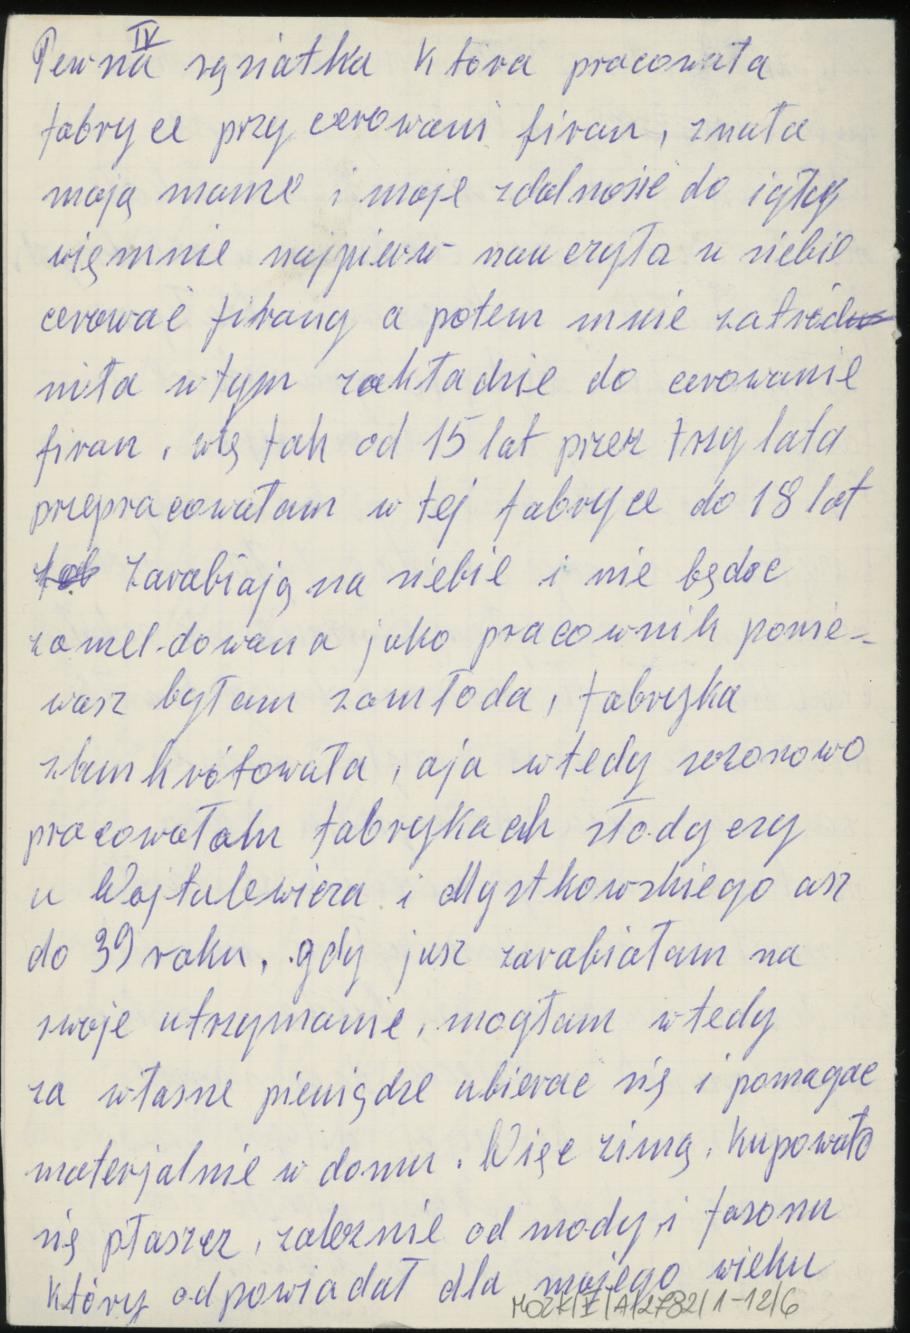 IV
Pewna sąsiatka która pracowała
fabryce przy cerowani firan, znała
moją mame i moje zdolnosie do igły
więmnie najpierw nauczyła u siebie
cerować firany a potem mnie zatród
niła w tym zakładzie do cerowanie
firan, wię tak od 15 lat przez trzy lata
przepracowałam w tej fabryce do 18 lat
zarabiają na siebie i nie będoc
zameldowana jako pracownik ponie-
wasz byłam zamłoda, fabryka
zbankrótowała, aja wtedy sezonowo
pracowałam fabrykach słodyczy
u Wojtalewicza i Mystkowskiego asz
do 39 roku, gdy jusz zarabiałam na
swoje utrzymanie, mogłam wtedy
za własne pieniądze ubierać się i pomagac
materjalnie w domu. Więc zimą, kupowało
się płaszcz, zaleznie od mody i fasonu
który odpowiadał dla mojego wieku
MOZK/I/A/2782/1-12/6